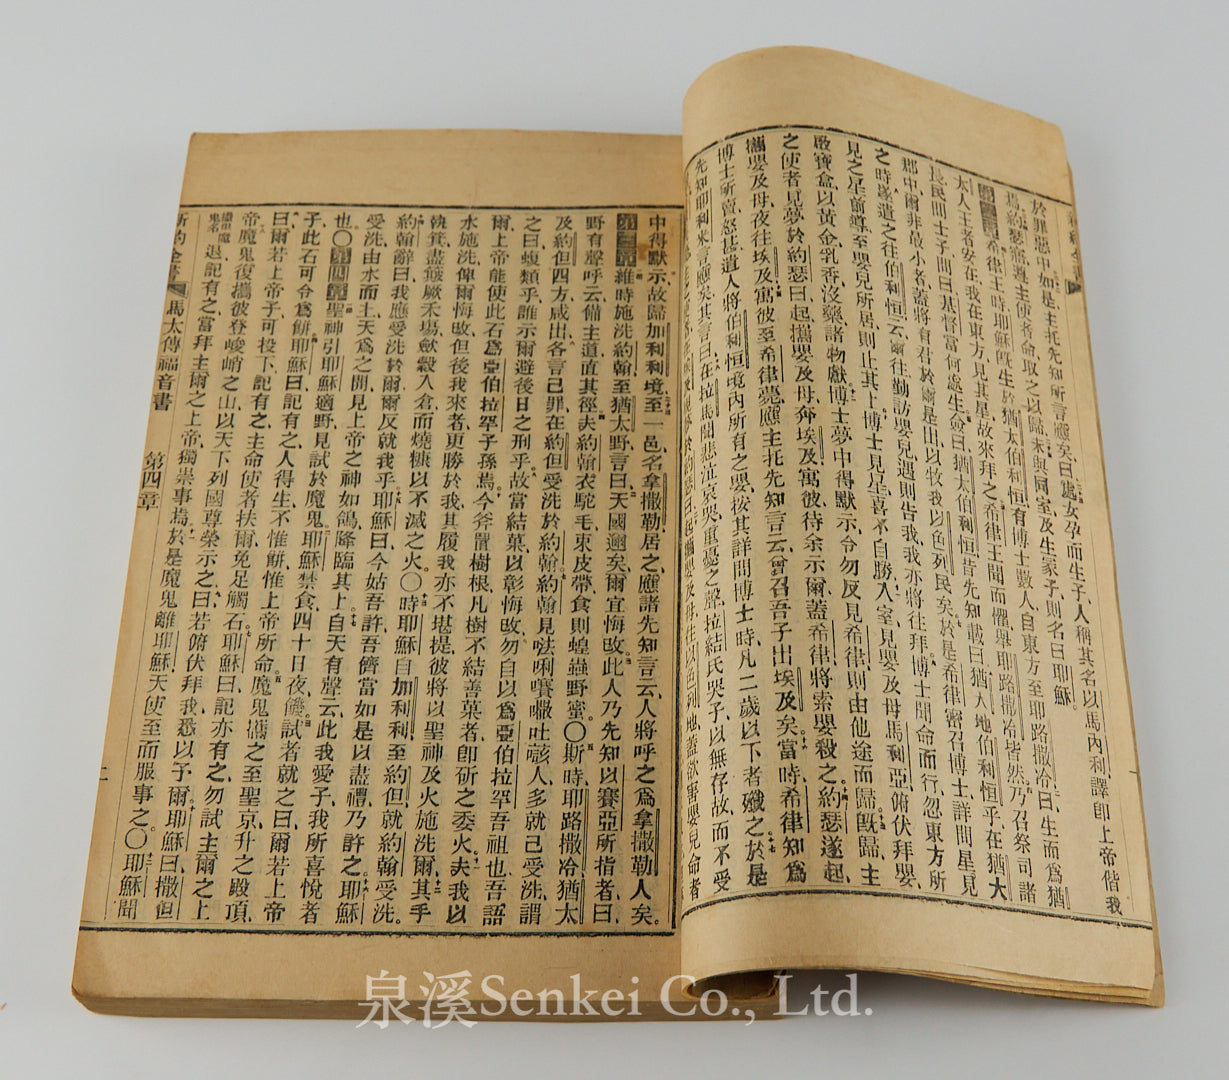 於罪惡中、如是主托先知所言應矣、曰處女孕而生子、人稱其名以馬內利、譯卽上帝偕我
焉、約瑟寤、遵主使者命、取之以歸、未與同室、及生冢子、則名曰耶穌。
第二章希律王時、耶穌旣生於猶太伯利恒、有博士數人、自東方至耶路撒冷曰、生而爲猶
太人王者安在、我在東方、見其星、故來拜之、希律王聞而懼、舉耶路撒冷皆然、乃召祭司諸
長、民間士子、問曰、基督當何處生、僉曰、猶太伯利恒、昔先知載曰、猶大地伯利恒乎、在猶大
郡中、爾非最小者、蓋將有君於爾是出、以牧我以色列民矣、於是希律密召博士、詳問星見
之時、遂遣之往伯利恒云、爾往勤訪嬰兒、遇則告我、我亦將往拜、博士聞命而行、忽東方所
見之星前導、至嬰兒所居、則止其上、博士見星、喜不自勝、入室見嬰、及母馬利亞、俯伏拜嬰、
啟寶盒、以黃金乳香沒藥諸物獻、博士夢中得默示、令勿反見希律、則由他途而歸。旣歸、主
之使者見夢於約瑟曰、起攜嬰及母、奔埃及、寓彼、待余示爾、蓋希律將索嬰殺之。約瑟遂起、
攜嬰及母、夜往埃及、寓彼至希律薨、應主托先知言云、曾召吾子出埃及矣、當時希律知爲
博士所賣、怒甚、遣人將伯利恒境內所有之嬰、按其詳問博士時、凡二歲以下者、殲之、於是
先知耶利米言應矣、其言曰、在拉馬聞悲泣哀哭重憂之聲、拉結氏哭子、以無存故、而不受
中得默示、故歸加利利境、至一邑、名拿撒勒居之、應諸先知言云、人將呼之爲拿撒勒人矣。
第三章維時施洗約翰至猶太野、言曰、天國邇矣、爾宜悔改、此人乃先知以賽亞所指者、曰、
野有聲呼云、備主道、直其徑、夫約翰衣駝毛、束皮帶、食則蝗蟲野蜜。〇斯時耶路撒冷、猶太、
及約但四方、咸出、各言己罪、在約但受洗於約翰、約翰見𠵽唎㘔㘔吐𠸎人、多就己受洗、謂
之曰、蝮類乎、誰示爾避後日之刑乎、故當結菓以彰悔改、勿自以爲亞伯拉罕吾祖也、吾語
爾、上帝能使此石爲亞伯拉罕子孫焉、今斧置樹根、凡樹不結善菓者、卽斫之委火、夫我以
水施洗、俾爾悔改、但後我來者、更勝於我、其履我亦不堪提、彼將以聖神及火施洗爾、其手
執箕、盡簸厥禾場、斂穀入倉、而燒糠以不滅之火〇時耶穌自加利利至約但、就約翰受洗。
約翰辭曰、我應受洗於爾、爾反就我乎、耶穌曰、今姑吾許、吾儕當如是以盡禮、乃許之、耶穌
受洗、由水而上、天爲之開、見上帝之神如鴿、降臨其上、自天有聲云、此我愛子、我所喜悅者
也〇第四章聖神引耶穌適野、見試於魔鬼、耶穌禁食、四十日夜、饑、試者就之曰、爾若上帝
子、此石可令爲餅、耶穌曰、記有之、人得生、不惟餅、惟上帝所命、魔鬼攜之至聖京、升之殿頂、
曰、爾若上帝子、可投下、記有之、主命使者扶爾、免足觸石、耶穌曰、記亦有之、勿試主爾之上
帝、魔鬼復攜彼登峻峭之山、以天下列國尊榮示之、曰、爾若俯伏拜我、悉以予爾、耶穌曰、撒但
退、記有之、當拜主爾之上帝、獨崇事焉、於是魔鬼離耶穌、天使至而服事之。〇耶穌聞
新約全書 馬太傳福音書 第四章 二
泉溪Senkei Co., Ltd.